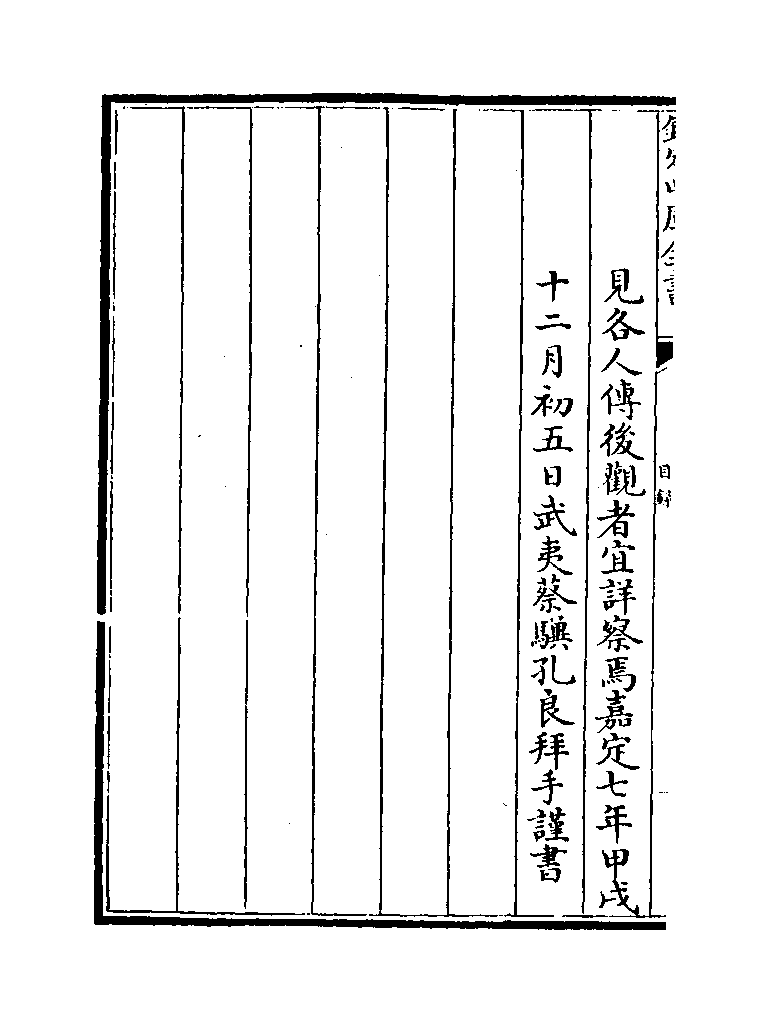 欽定四庫全書
目録
見各人傳後觀者宜詳察焉嘉定七年甲戌
十二月初五日武夷蔡驥孔良拜手謹書